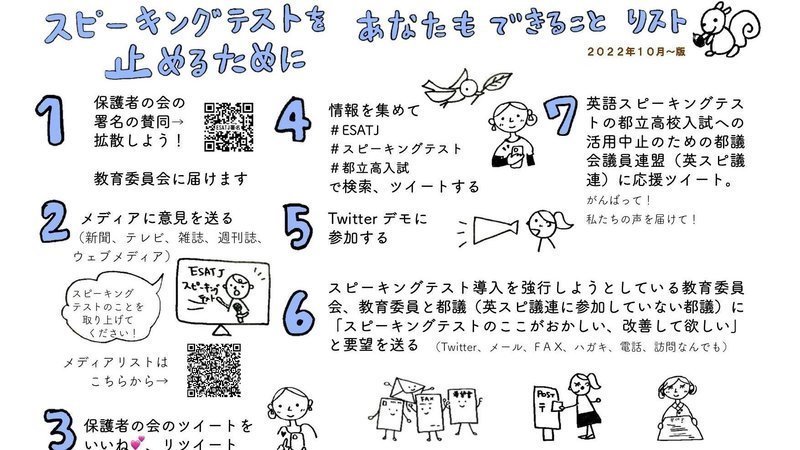 スピーキングテストを
止めるために
あなたも できること リスト
2022年10月〜版
1
保護者の会の
署名の賛同→
拡散しよう！
教育委員会に届けます
ESATJ署名
2
メディアに意見を送る
（新聞、テレビ、雑誌、週刊誌、
ウェブメディア）
スピーキング
テストのことを
取り上げて
ください！
ESATJ
スピーキング
テスト
メディアリストは
こちらから→
3
保護者の会のツイートを
いいね💕、リツイート
4
情報を集めて
＃ESATJ
＃スピーキングテスト
＃都立高入試
で検索、ツイートする
5
Twitter デモに
参加する
6
スピーキングテスト導入を強行しようとしている教育委員
会、教育委員と都議（英スピ議連に参加していない都議）に
「スピーキングテストのここがおかしい、改善して欲しい」
と要望を送る （Twitter、メール、FAX、ハガキ、電話、訪問なんでも）
FAX
POST
〒
7
英語スピーキングテス
トの都立高校入試への
活用中止のための都議
会議員連盟（英スピ議
連）に応援ツイート。
がんばって！
私たちの声を届けて！